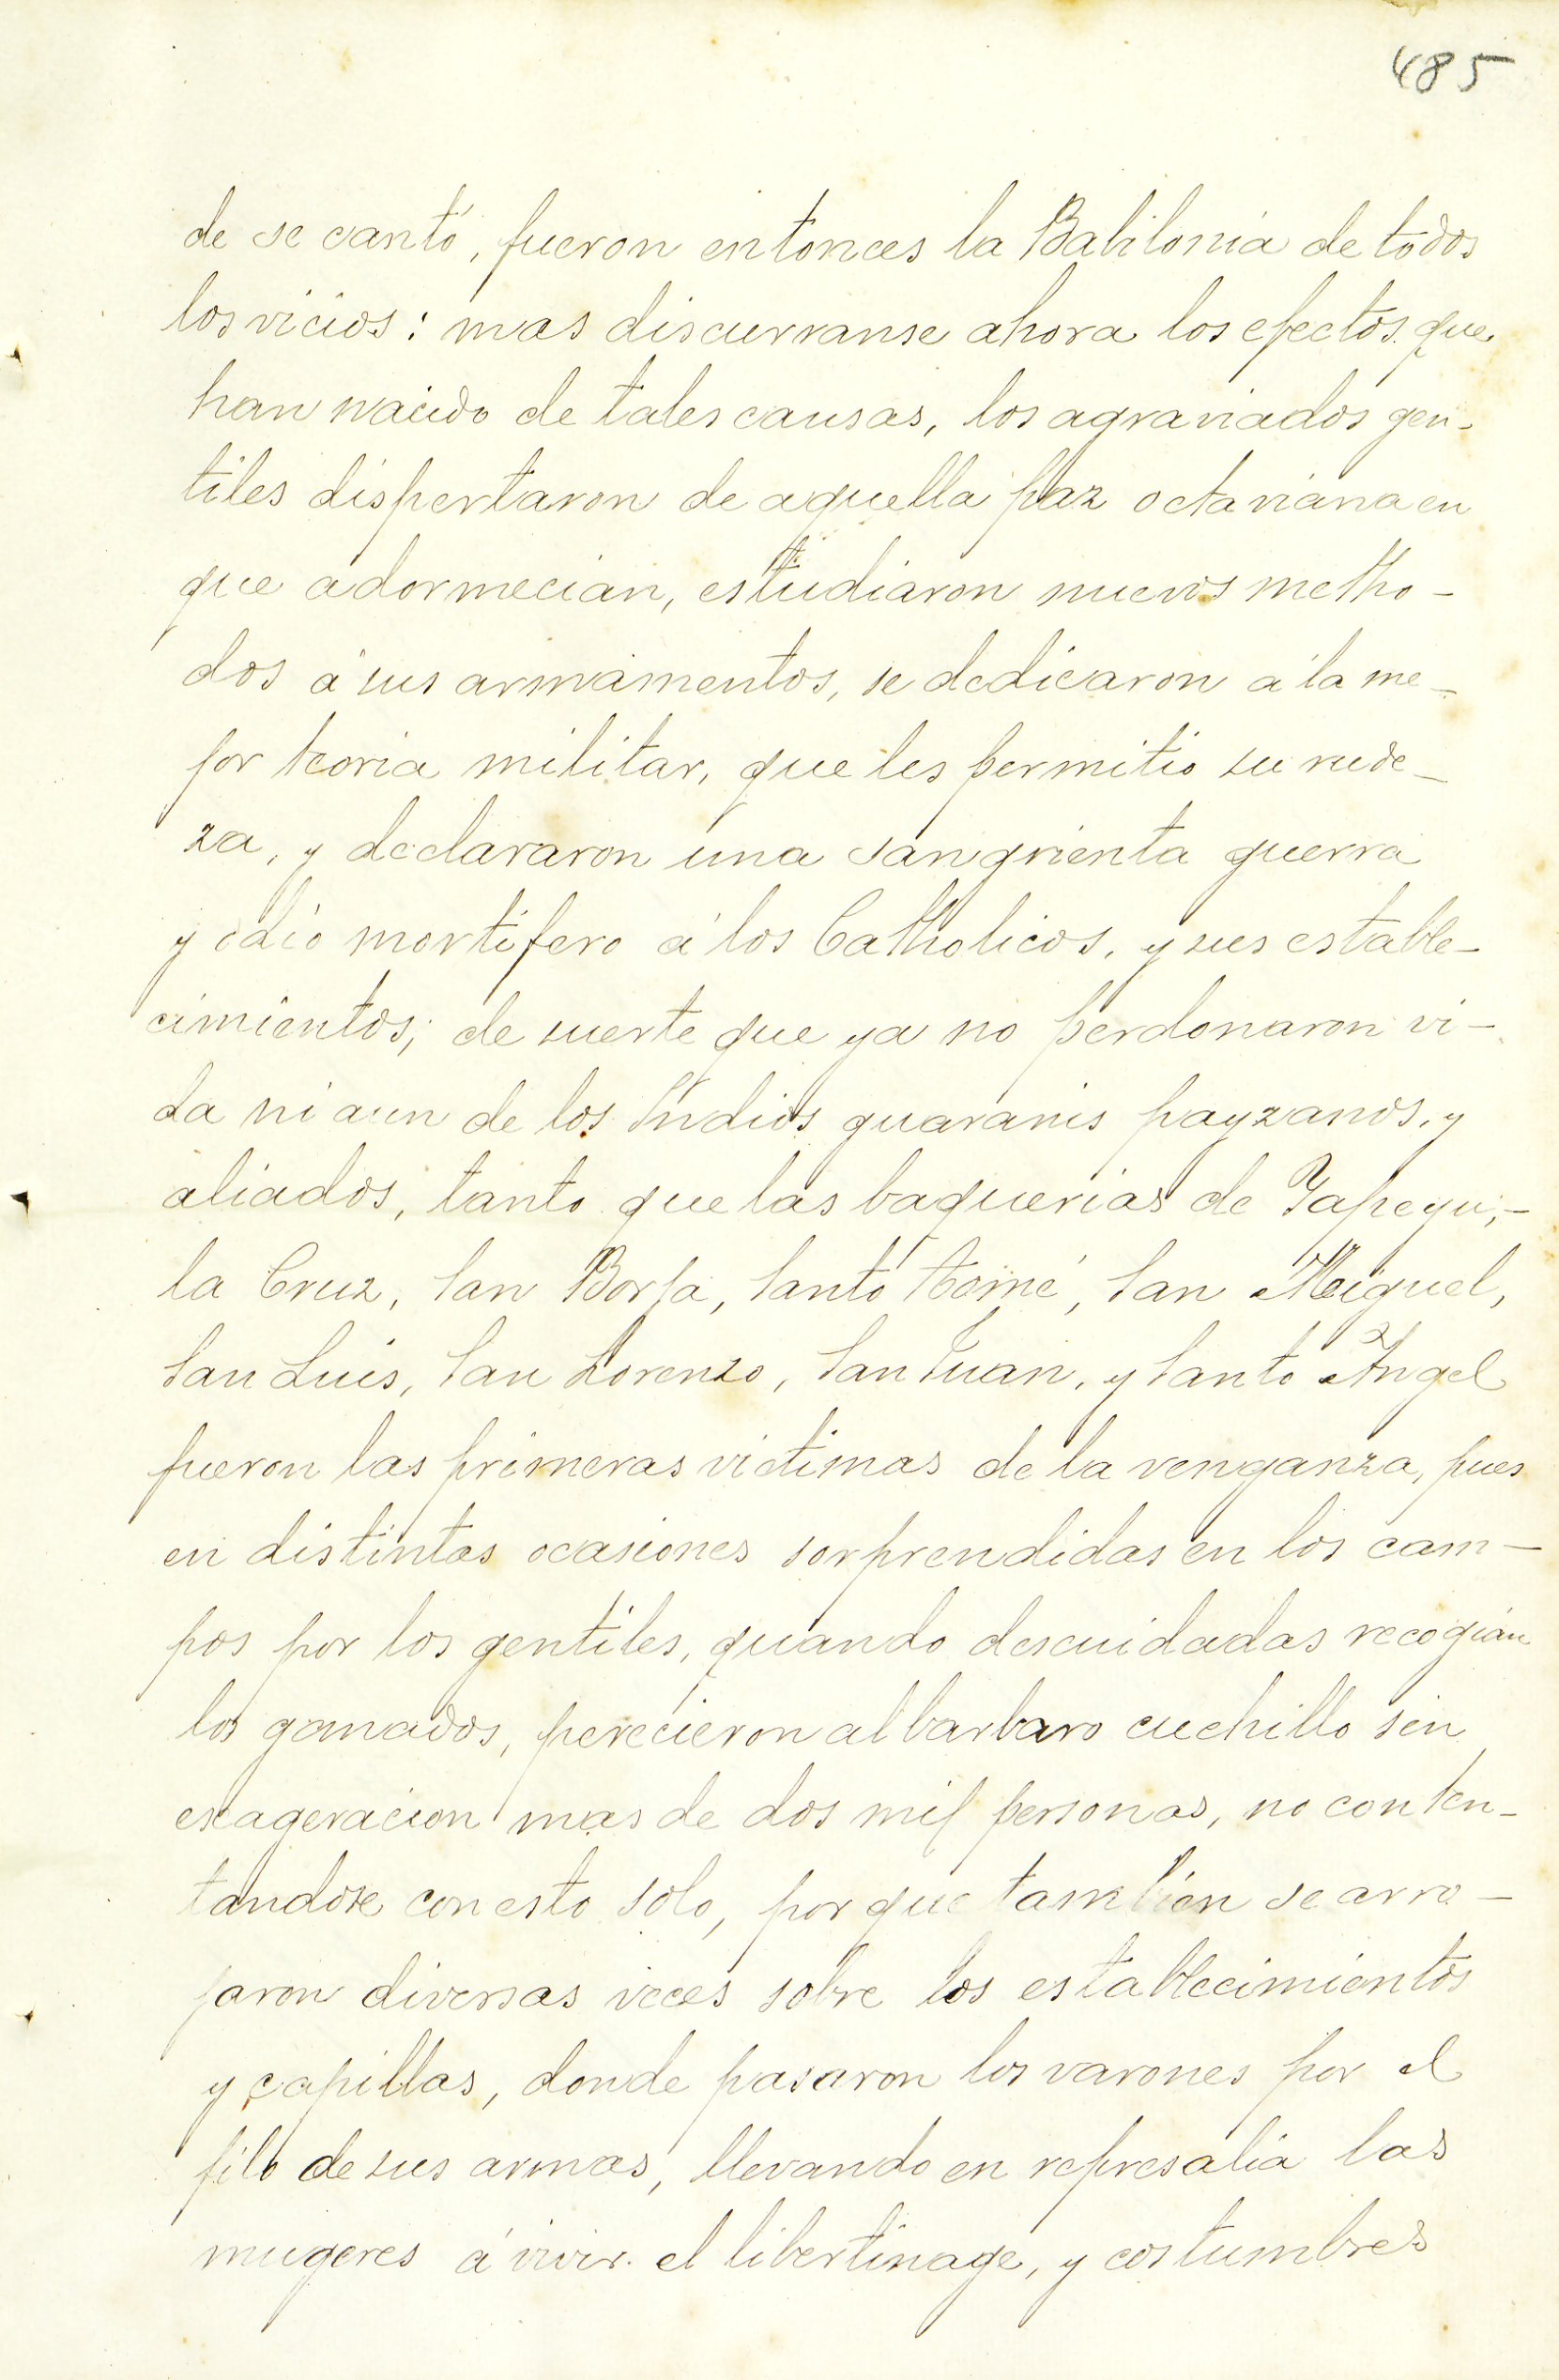 485
de se cantó, fueron entonces la Babilonia de todos
los vicios: mas discurranse ahora los efectos que
han nacido de tales causas, los agraviados gen-
tiles dispertaron de aquella paz octaviana en
que adormecian, estudiaron nuevos metho-
dos á sus armamentos, se dedicaron á la me-
jor teoria militar, que les permitio su rude-
za, y declararon una sangrienta guerra
y odio mortifero á los Catholicos, y sus estable-
cimientos; de suerte que ya no perdonaron vi-
da ni aun de los Indios guaranis payzanos, y
aliados, tanto que las baquerias de Yapeyu,-
la Cruz, San Borja, Santo tomé, San Miguel,
San Luis, San Lorenzo, San Juan, y Santo Angel
fueron las primeras victimas de la venganza, pues
en distintas ocasiones sorprendidas en los cam-
pos por los gentiles, quando descuidadas recogian
los ganados, perecieron al barbaro cuchillo sin
exageracion mas de dos mil personas, no conten-
tandose con esto solo, por que tambien se arro-
jaron diversas veces sobre los establecimientos
y capillas, donde pasaron los varones por el
filo de sus armas, llevando en represalia las
mugeres á vivir el libertinage, y costumbres